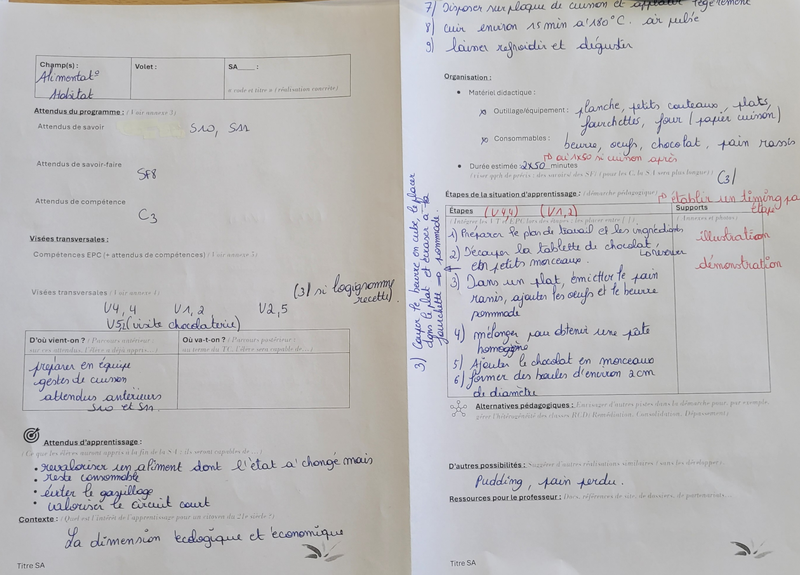 Champ(s) :
Alimentat°
Habitat
Volet :
SA____ :
« code et titre » (réalisation concrète)
Attendus du programme : (Voir annexe 3)
Attendus de savoir
S10, S11
Attendus de savoir-faire
SF8
Attendus de compétence
C3
Visées transversales :
Compétences EPC (+ attendus de compétences)
Visées transversales
(3) si logigramme
recette).
V4,4 V1,2 V2,5
(visite chocolaterie)
D'où vient-on ?
préparer en équipe
gestes de cuisson
attendus antérieurs
S10 et S11
Où va-t-on ?
Attendus d'apprentissage :
• revaloriser un aliment dont l'état a changé mais
• reste consommable
• éviter le gaspillage
• valoriser le circuit court
Contexte : (Quel est l'intérêt de l'apprentissage pour un citoyen du 21e siècle ?)
La dimension écologique et économique
Titre SA
7) Disposer sur plaque de cuisson et légèrement
8) cuir environ 15 min a 180°C. air pulsé
9) laisser refroidir et déguster
Organisation :
• Matériel didactique :
Outillage/équipement : planche, petits couteaux, plats,
fourchettes, four (papier cuisson)
Consommables : beurre, oeufs, chocolat, pain rassis
• Durée estimée : 2x50 minutes
1x50 si cuisson après
(3)
établir un timing
étape
Étapes de la situation d'apprentissage : (démarche pédagogique)
Étapes (V4,4) (V1,2)
Supports
1) Préparer le plan de travail et les ingrédients
illustration
2) Découper la tablette de chocolat
en petits morceaux.
démonstration
3) Dans un plat, émietter le pain
rassis, ajouter les oeufs et le beurre
pommade
4) mélanger pour obtenir une pâte
homogène
5) Ajouter le chocolat en morceaux
6) former des boules d'environ 2cm
de diamètre
3) Couper le beurre en cube, le placer
dans le plat et écraser a la
fourchette → pommade.
Alternatives pédagogiques : Envisager d'autres pistes dans la démarche pour, par exemple,
gérer l'hétérogénéité des classes RCD: Remédiation, Consolidation, Dépassement;
D'autres possibilités : Suggérer d'autres réalisations similaires
Pudding, pain perdu.
Ressources pour le professeur :
Titre SA